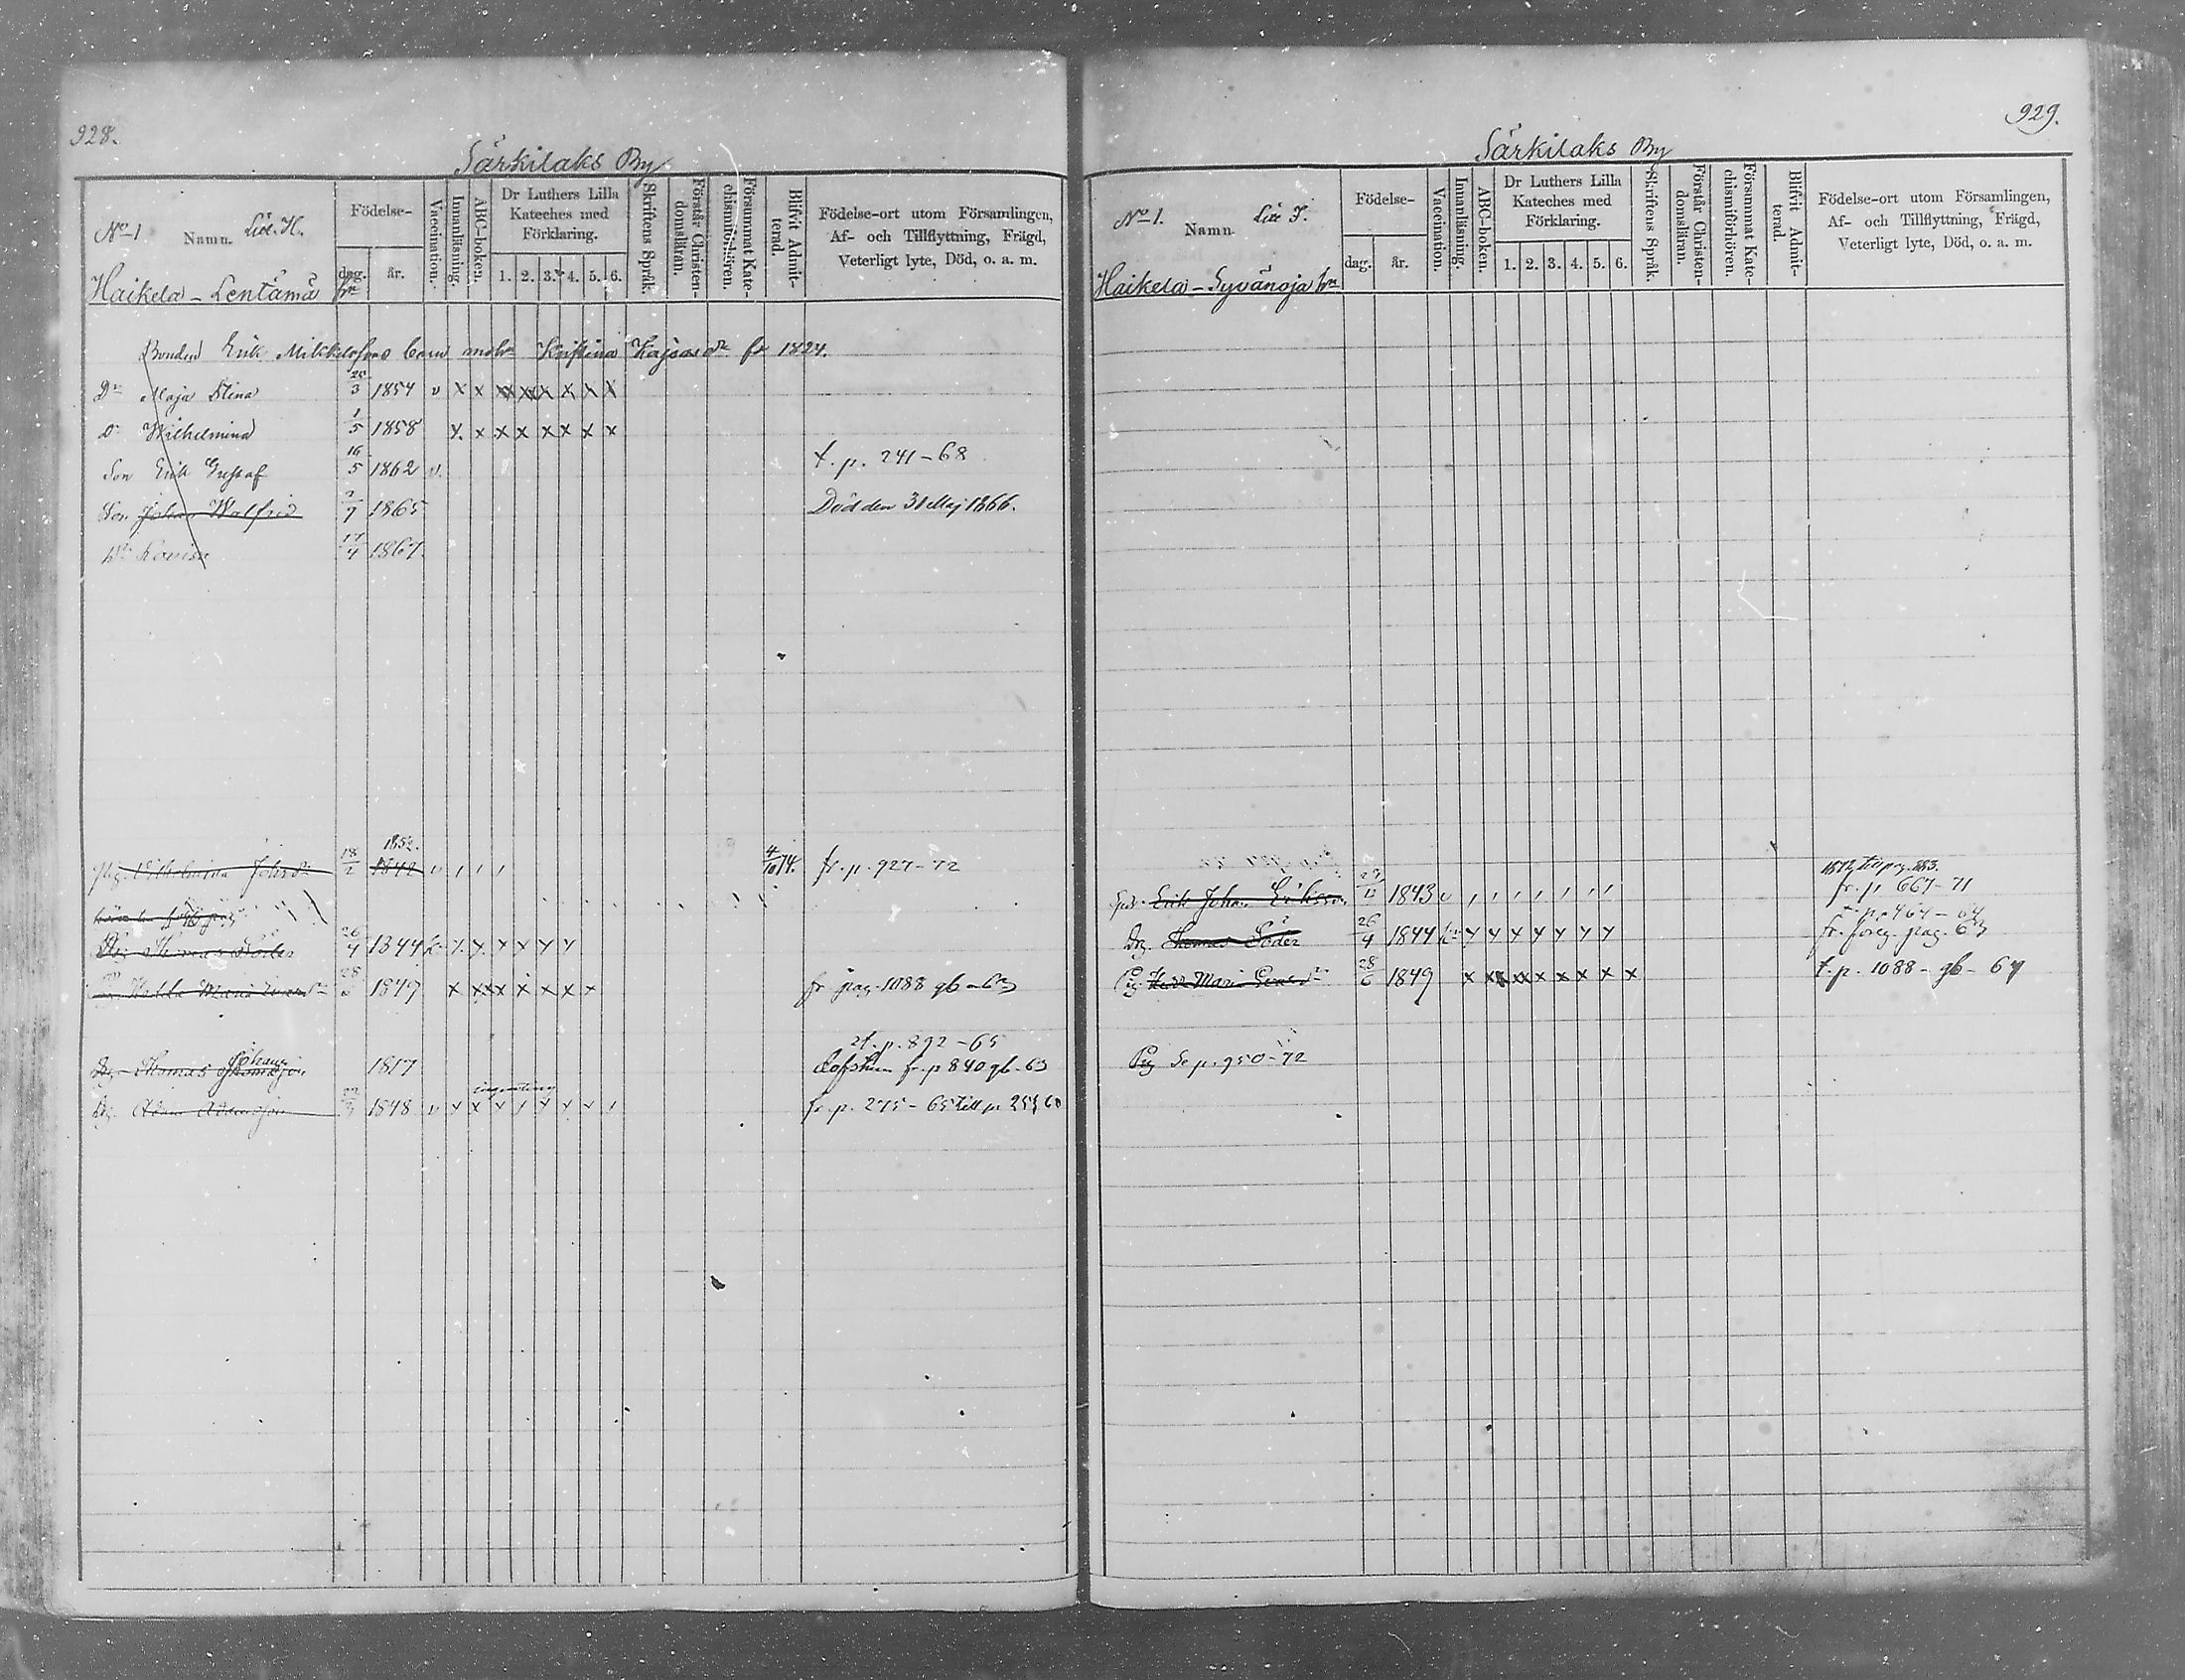 928.
Särkilaks By
No 1 Namn. Litt. H.
Födelse-
dag. år.
Vaccination.
Innanläsning.
ABC-boken.
Dr Luthers Lilla
Kateches med
Förklaring.
1. 2. 3. 4. 5. 6.
Skriftens Språk.
Förstår Christen-
domsläran.
Försummat Kate-
chismiförhören.
Blifvit Admit-
terad.
Födelse-ort utom Församlingen,
Af- och Tillflyttning, Frägd,
Veterligt lyte, Död, o. a. m.
Haikela - Lentämä hn
Bonden Erik Mikkelsons barn modr Kristina Kajsasdr fr 1824.
Dr Maja Stina 3 1854 v x x x x x x x x
Dr Wilhelmina 1/5 1858 x x x x x x x x
Son Erik Gustaf 16/5 1862 v. t. p. 241-68
Son Johan Walfrid 2/7 1865 Död den 31 Maj 1866.
Dr Lovisa 17/4 1867
1852.
Pig. Vilhelmina Johsdr 18/2 1842 v 4/10 74. fr. p. 927-72
Drg Thomas Söder 26/4 1844
Hedda Maria 28 1849 x x x x x x x fr pag. 1088 gb-63
t. p. 892-65
Johans
Drg Thomas 1817 Lofsken fr p 840 gb-63
Drg. Adam Adamsson 1848 v fr. p. 275-65 till p. 257 68
929.
Särkilaks By
No 1. Namn Litt. I.
Födelse-
dag. år.
Vaccination.
Innanläsning.
ABC-boken.
Dr Luthers Lilla
Kateches med
Förklaring.
1. 2. 3. 4. 5. 6.
Skriftens Språk.
Förstår Christen-
domsläran.
Försummat Kate-
chismiförhören.
Blifvit Admit-
terad.
Födelse-ort utom Församlingen,
Af- och Tillflyttning, Frägd,
Veterligt lyte, Död, o. a. m.
Haikela - Syvänoja hn
1872 till pag. 883.
Erik Johan Eriksson 1843 v fr. p. 667-71
t. p. 464-64
Drg. Thomas Söder 26/4 1844 fr. föreg. pag. 63
Pig. Hedda Maria 28/6 1849 x x x x x x x x t. p. 1088 - gb - 67
Pig Se p. 950-72